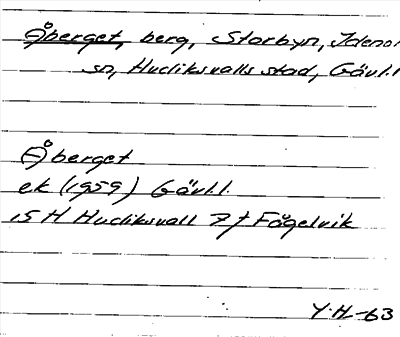 Åberget, berg, Storbyn, Idenor
sn, Hudiksvalls stad, Gävl.l
Åberget
ek (1959) Gävl.l.
15 H Hudiksvall 7 f Fågelvik
Y.H.-63